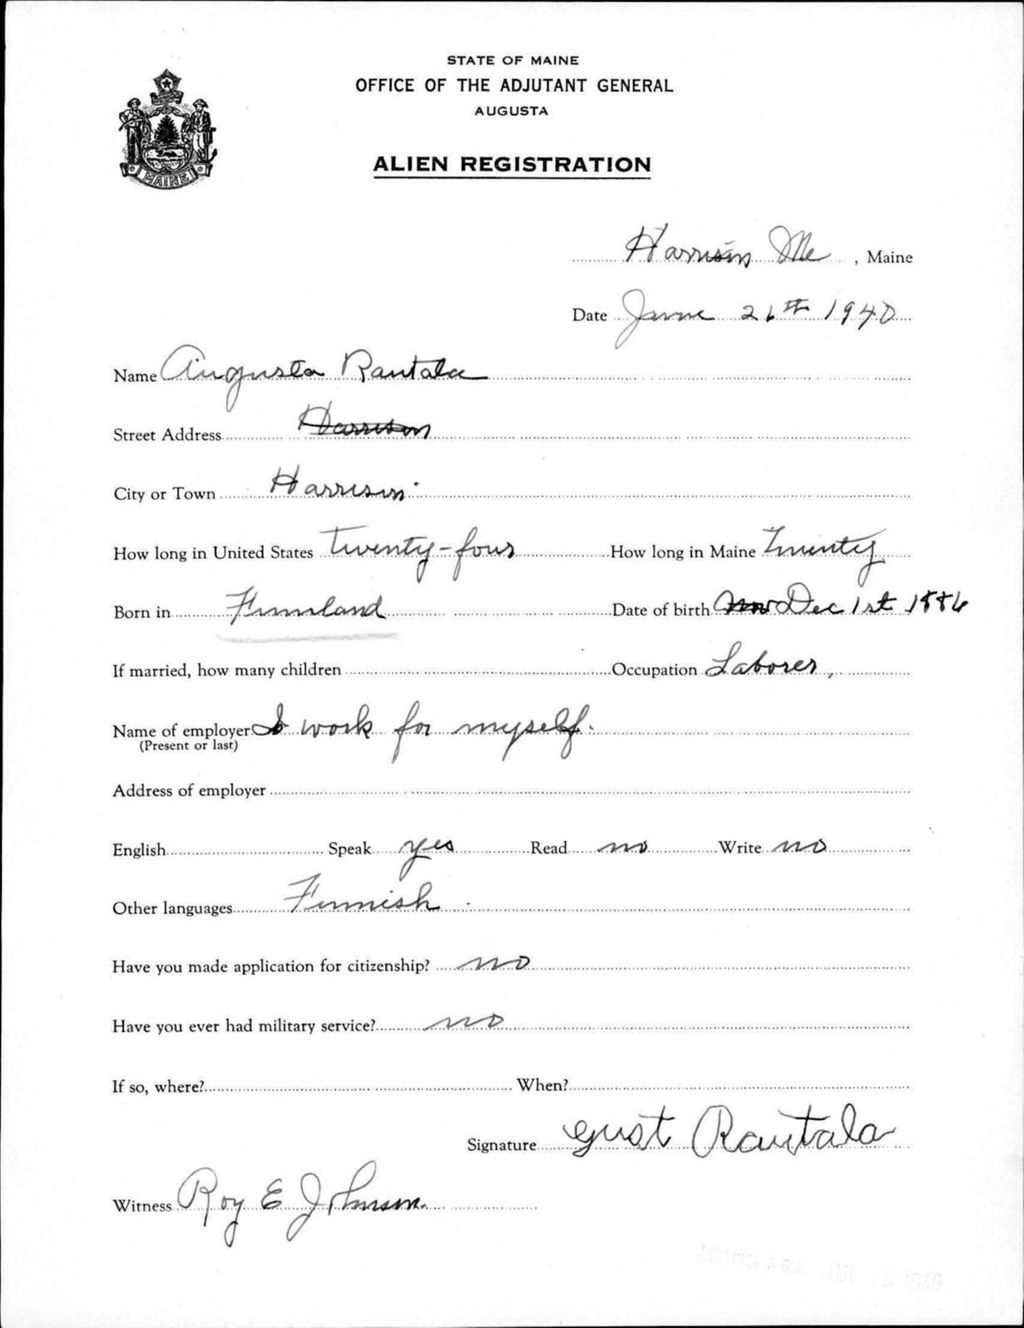 STATE OF MAINE
OFFICE OF THE ADJUTANT GENERAL
AUGUSTA
ALIEN REGISTRATION
MAINE
Harrison Me, Maine
Date June 26th 1940
Name Augusta Rautala
Street Address Harrison
City or Town Harrison
How long in United States Twenty-four How long in Maine Twenty
Born in Finnland Date of birth Nov Dec 1st 1886
If married, how many children Occupation Laborer,
Name of employer I work for myself.
(Present or last)
Address of employer
English Speak yes Read no Write no
Other languages Finnish
Have you made application for citizenship? no
Have you ever had military service? no
If so, where? When?
Signature gust Rautala
Witness Roy E Johnson